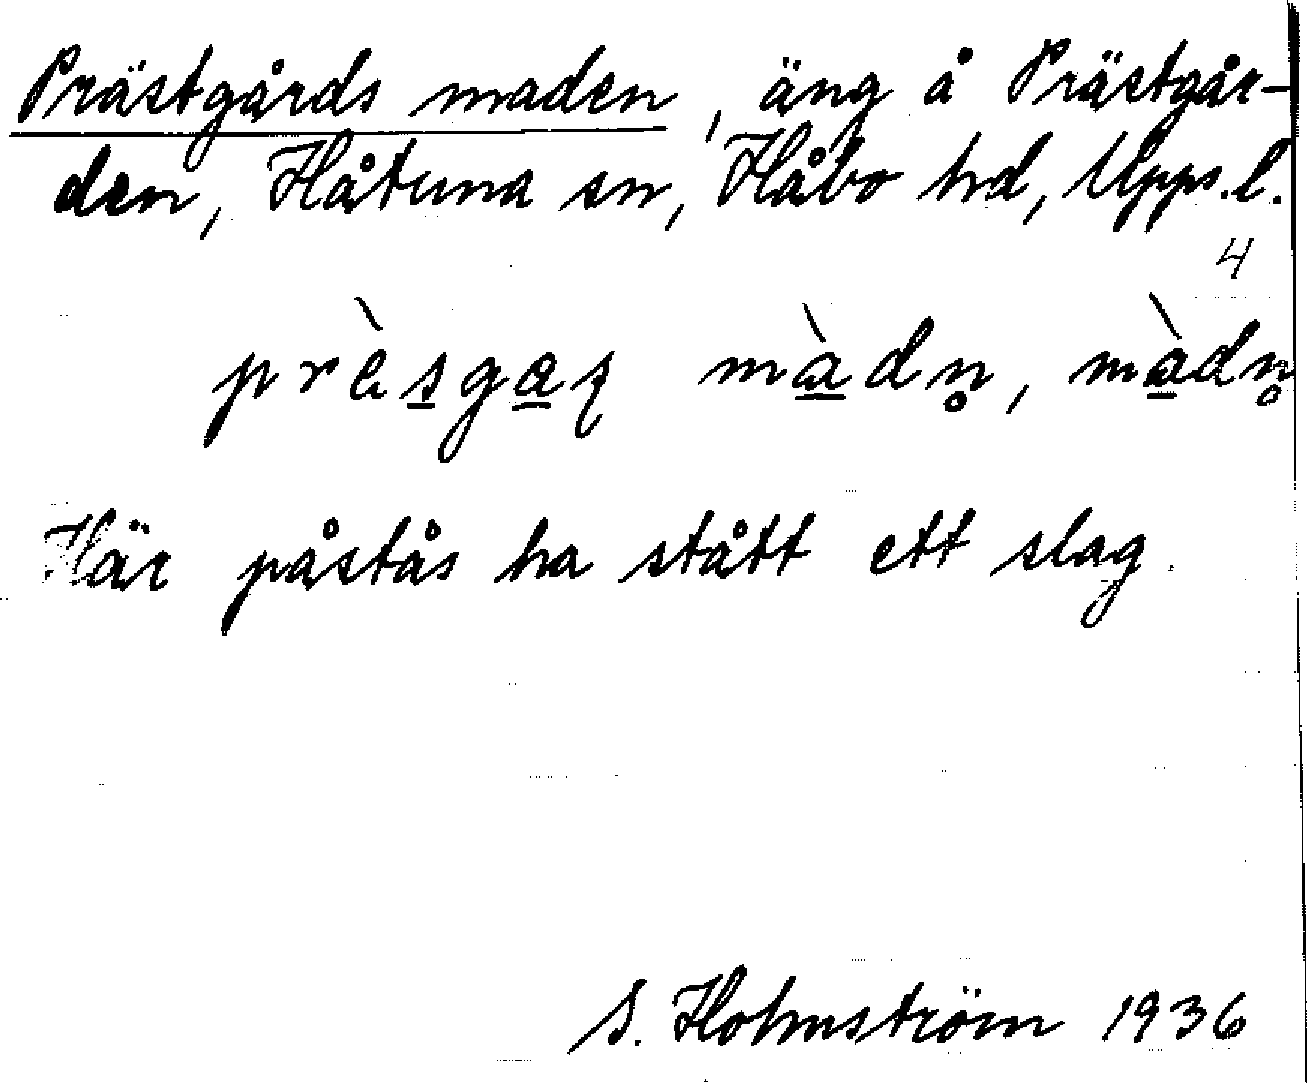 Prästgårds maden, äng å Prästgår-
den, Håtuna sn, Håbo hd, Upps.l.
4
prèsgaʂ màdn̥, màdn̥
Här påstås ha stått ett slag.
S. Holmström 1936